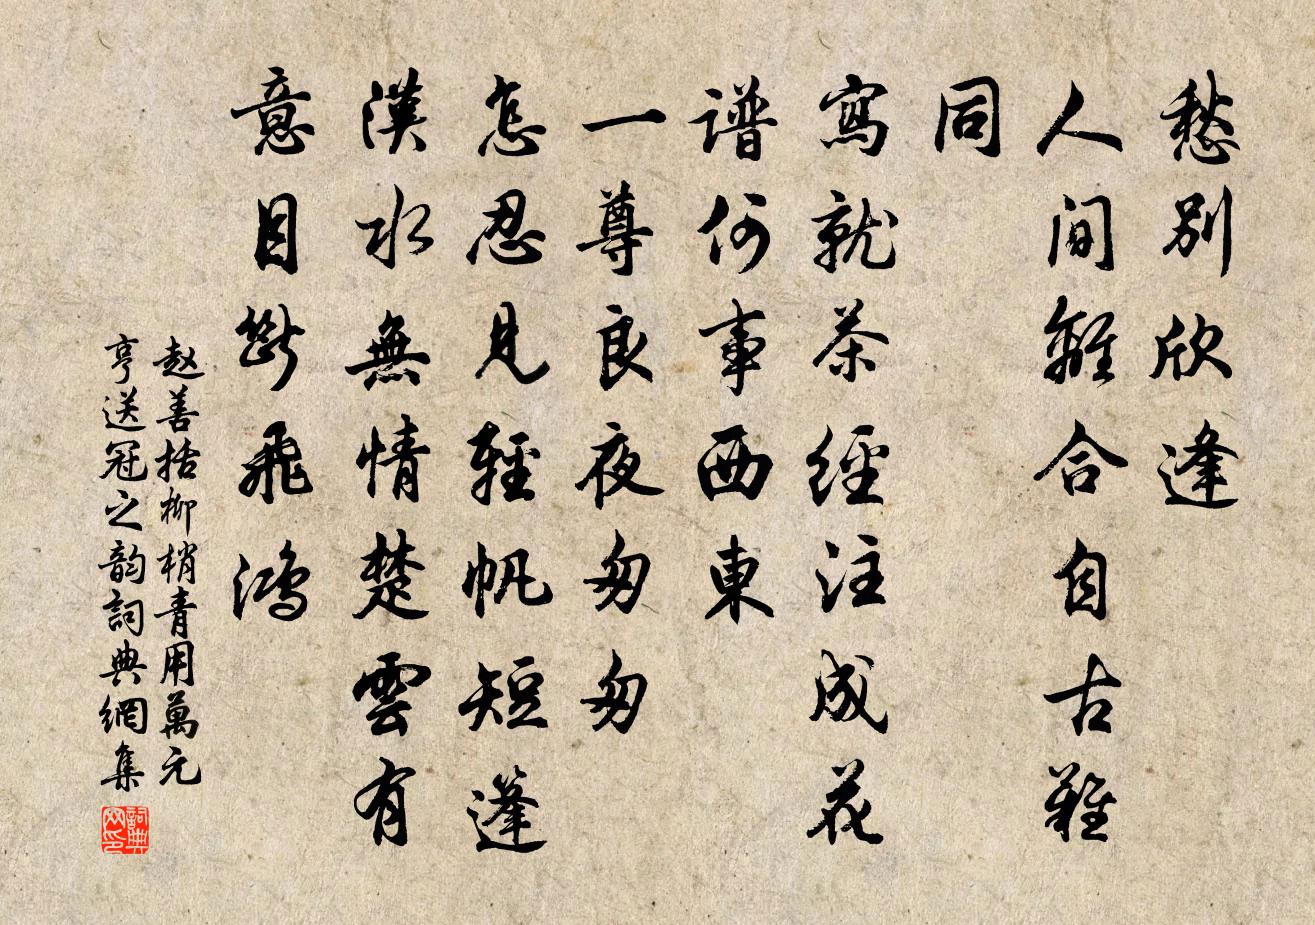 愁別欣逢
人間離合自古難
同
寫就茶經注成花
譜何事西東
一尊良夜匆匆
怎忍見輕帆短蓬
漢水無情楚雲有
意目斷飛鴻
赵善括柳梢青用萬元
亨送冠之韵詞典網集
詞典网印